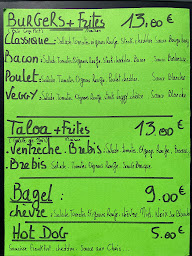 BURGERS + Frites 13,00€
Classique : Salade Tomates, oignons Rouge, Steak cheddar, Sauce Burger
Bacon : Salade Tomates, Oignons Rouge, Steak cheddar Bacon Sauce
Poulet : Salade Tomates Oignons Rouge, Poulet cheddar Sauce Blanche
Veggy : Salade Tomates Oignons Rouge, Steak Veggy cheddar Sauce Blanche
Taloa + frites 13,00€
Ventreche. Brebis : Salade Tomates Oignon Rouge, Brebis
Brebis : Salade Tomates Oignons Rouge, Sauce
Bagel : 9.00€
chèvre : Salade Tomates Oignons Rouge, chèvre Miel, Noix Sauce Blanche
HOT DOG 5.00€
Saucisse Francfort cheddar Sauce au Choix.